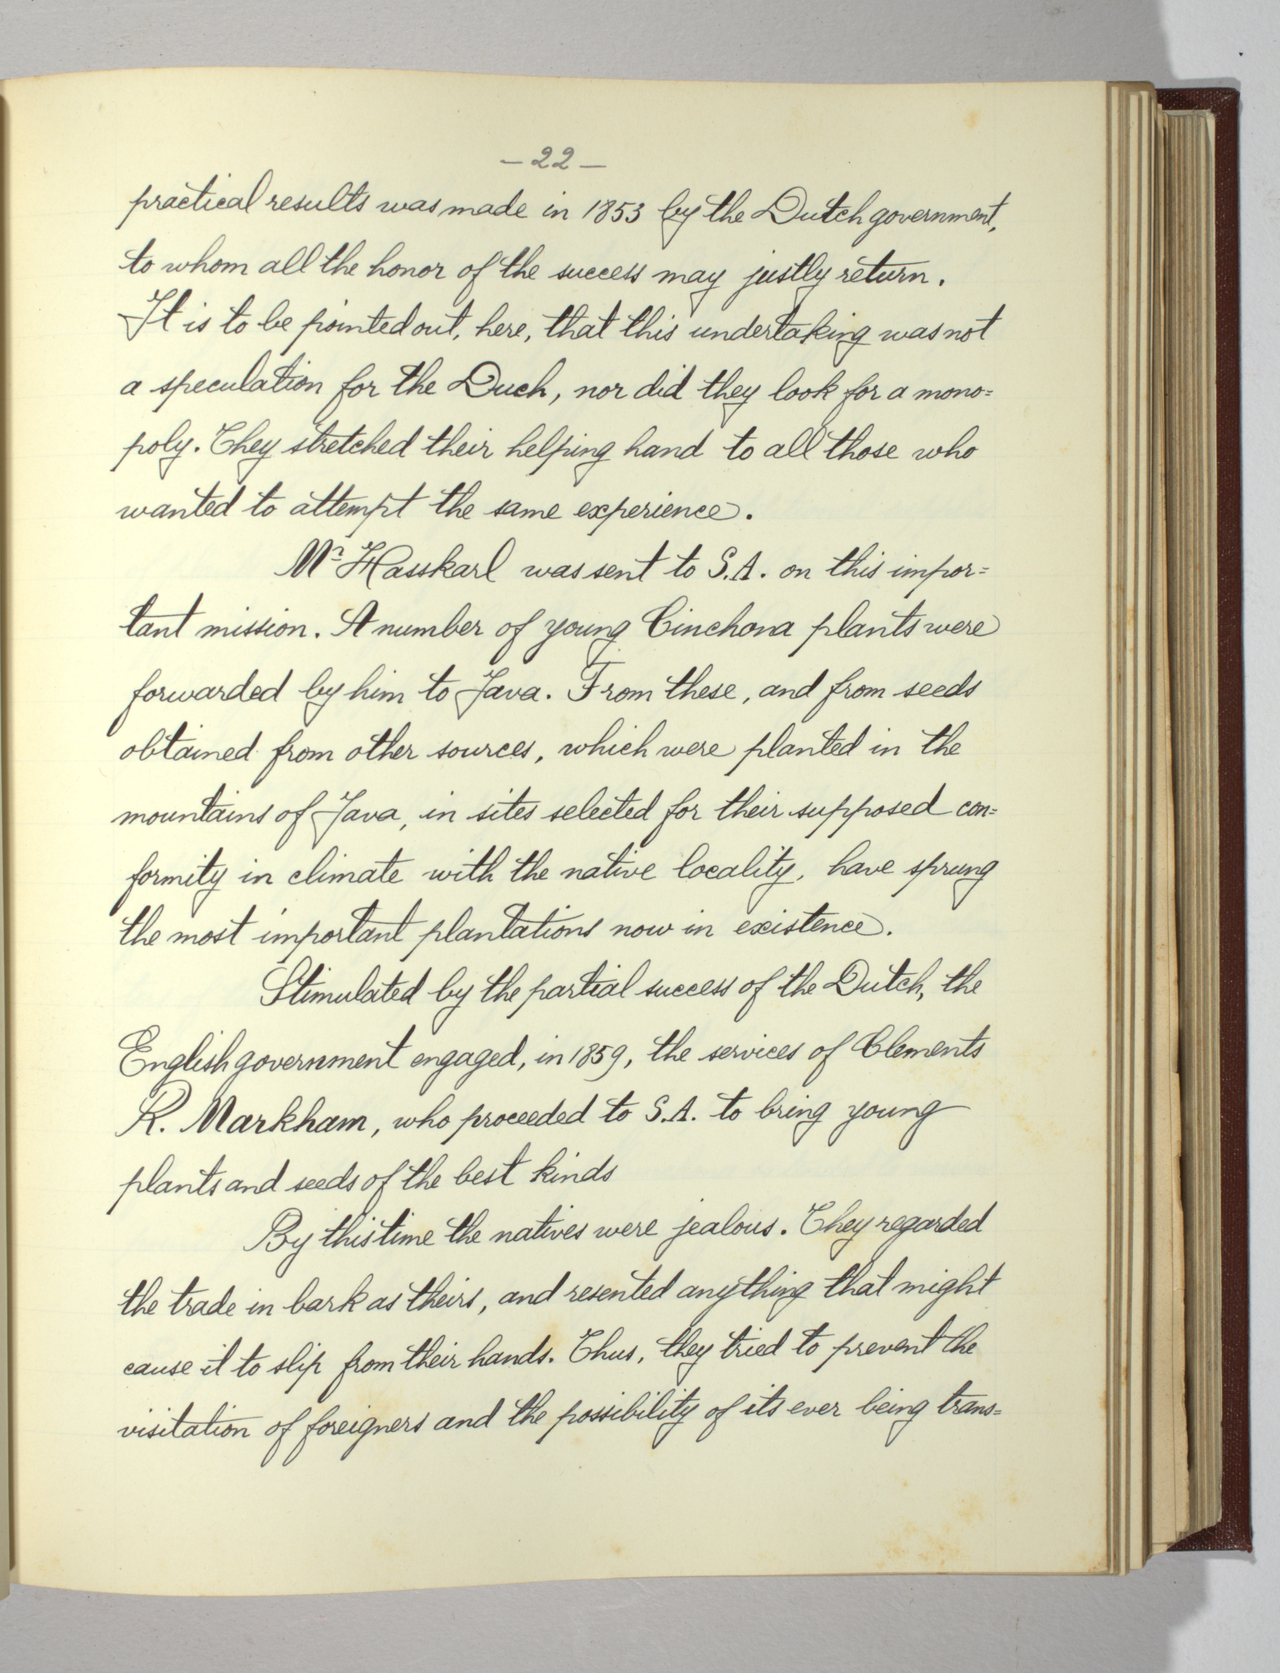 — 22 —
practical results was made in 1853 by the Dutch government,
to whom all the honor of the success may justly return.
It is to be pointed out, here, that this undertaking was not
a speculation for the Duch, nor did they look for a mono=
poly. They stretched their helping hand to all those who
wanted to attempt the same experience.
Mr Hasskarl was sent to S.A. on this impor=
tant mission. A number of young Cinchona plants were
forwarded by him to Java. From these, and from seeds
obtained from other sources, which were planted in the
mountains of Java, in sites selected for their supposed con=
formity in climate with the native locality, have sprung
the most important plantations now in existence.
Stimulated by the partial success of the Dutch, the
English government engaged, in 1859, the services of Clements
R. Markham, who proceeded to S.A. to bring young
plants and seeds of the best kinds
By this time the natives were jealous. They regarded
the trade in bark as theirs, and resented anything that might
cause it to slip from their hands. Thus, they tried to prevent the
visitation of foreigners and the possibility of its ever being trans=